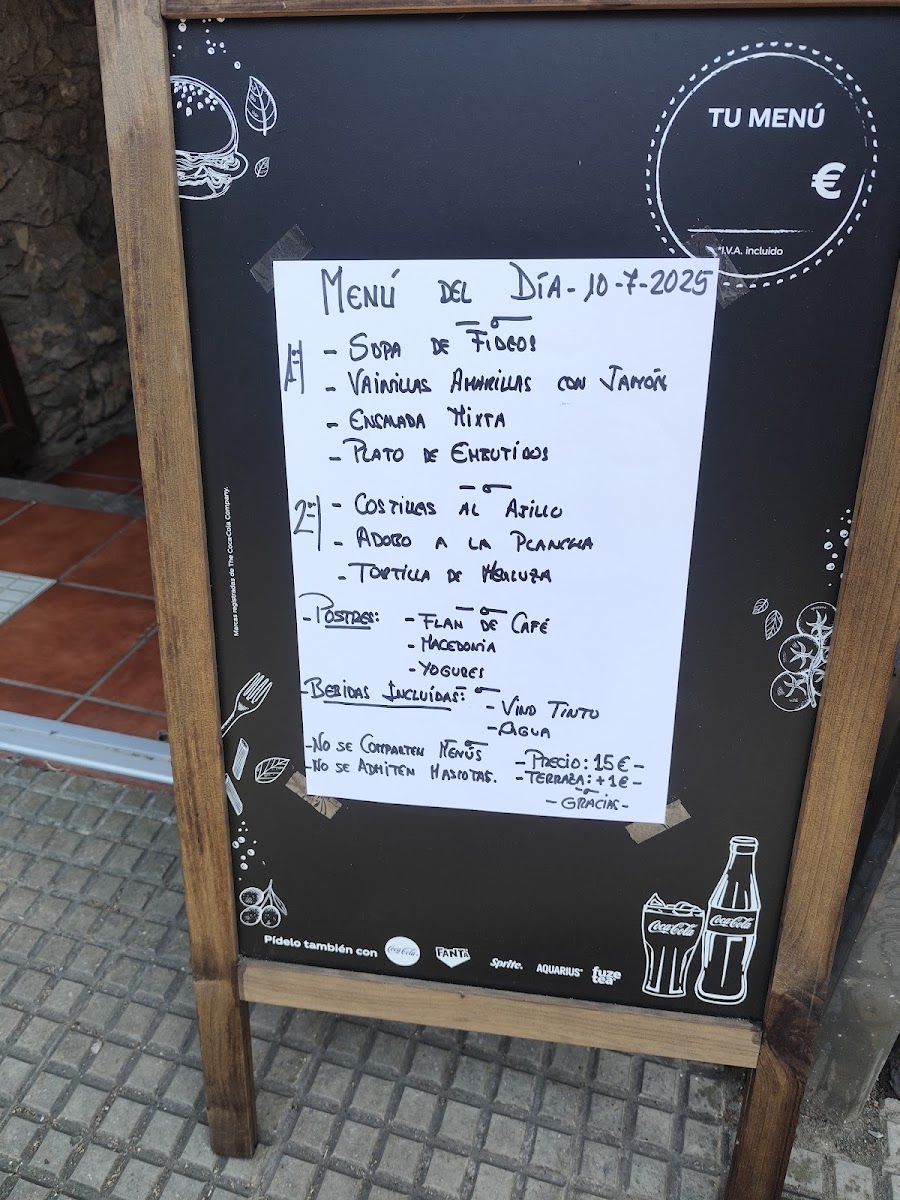 TU MENÚ
€
*I.V.A. incluido
MENÚ DEL DÍA - 10-7-2025
1º - SOPA DE FIDEOS
- VAINILLAS AMARILLAS CON JAMÓN
- ENSALADA MIXTA
- PLATO DE EMBUTIDOS
2º - COSTILLAS AL AJILLO
- ADOBO A LA PLANCHA
- TORTILLA DE MERLUZA
- POSTRES: - FLAN DE CAFÉ
- MACEDONIA
- YOGURES
- BEBIDAS INCLUÍDAS: - VINO TINTO
- AGUA
- NO SE COMPARTEN MENÚS
- NO SE ADMITEN MASCOTAS.
- PRECIO: 15€ -
- TERRAZA: +1€ -
- GRACIAS -
Marcas registradas de The Coca-Cola Company.
Coca-Cola
Coca-Cola
Pídelo también con Coca-Cola FANTA Sprite. AQUARIUS fuze tea